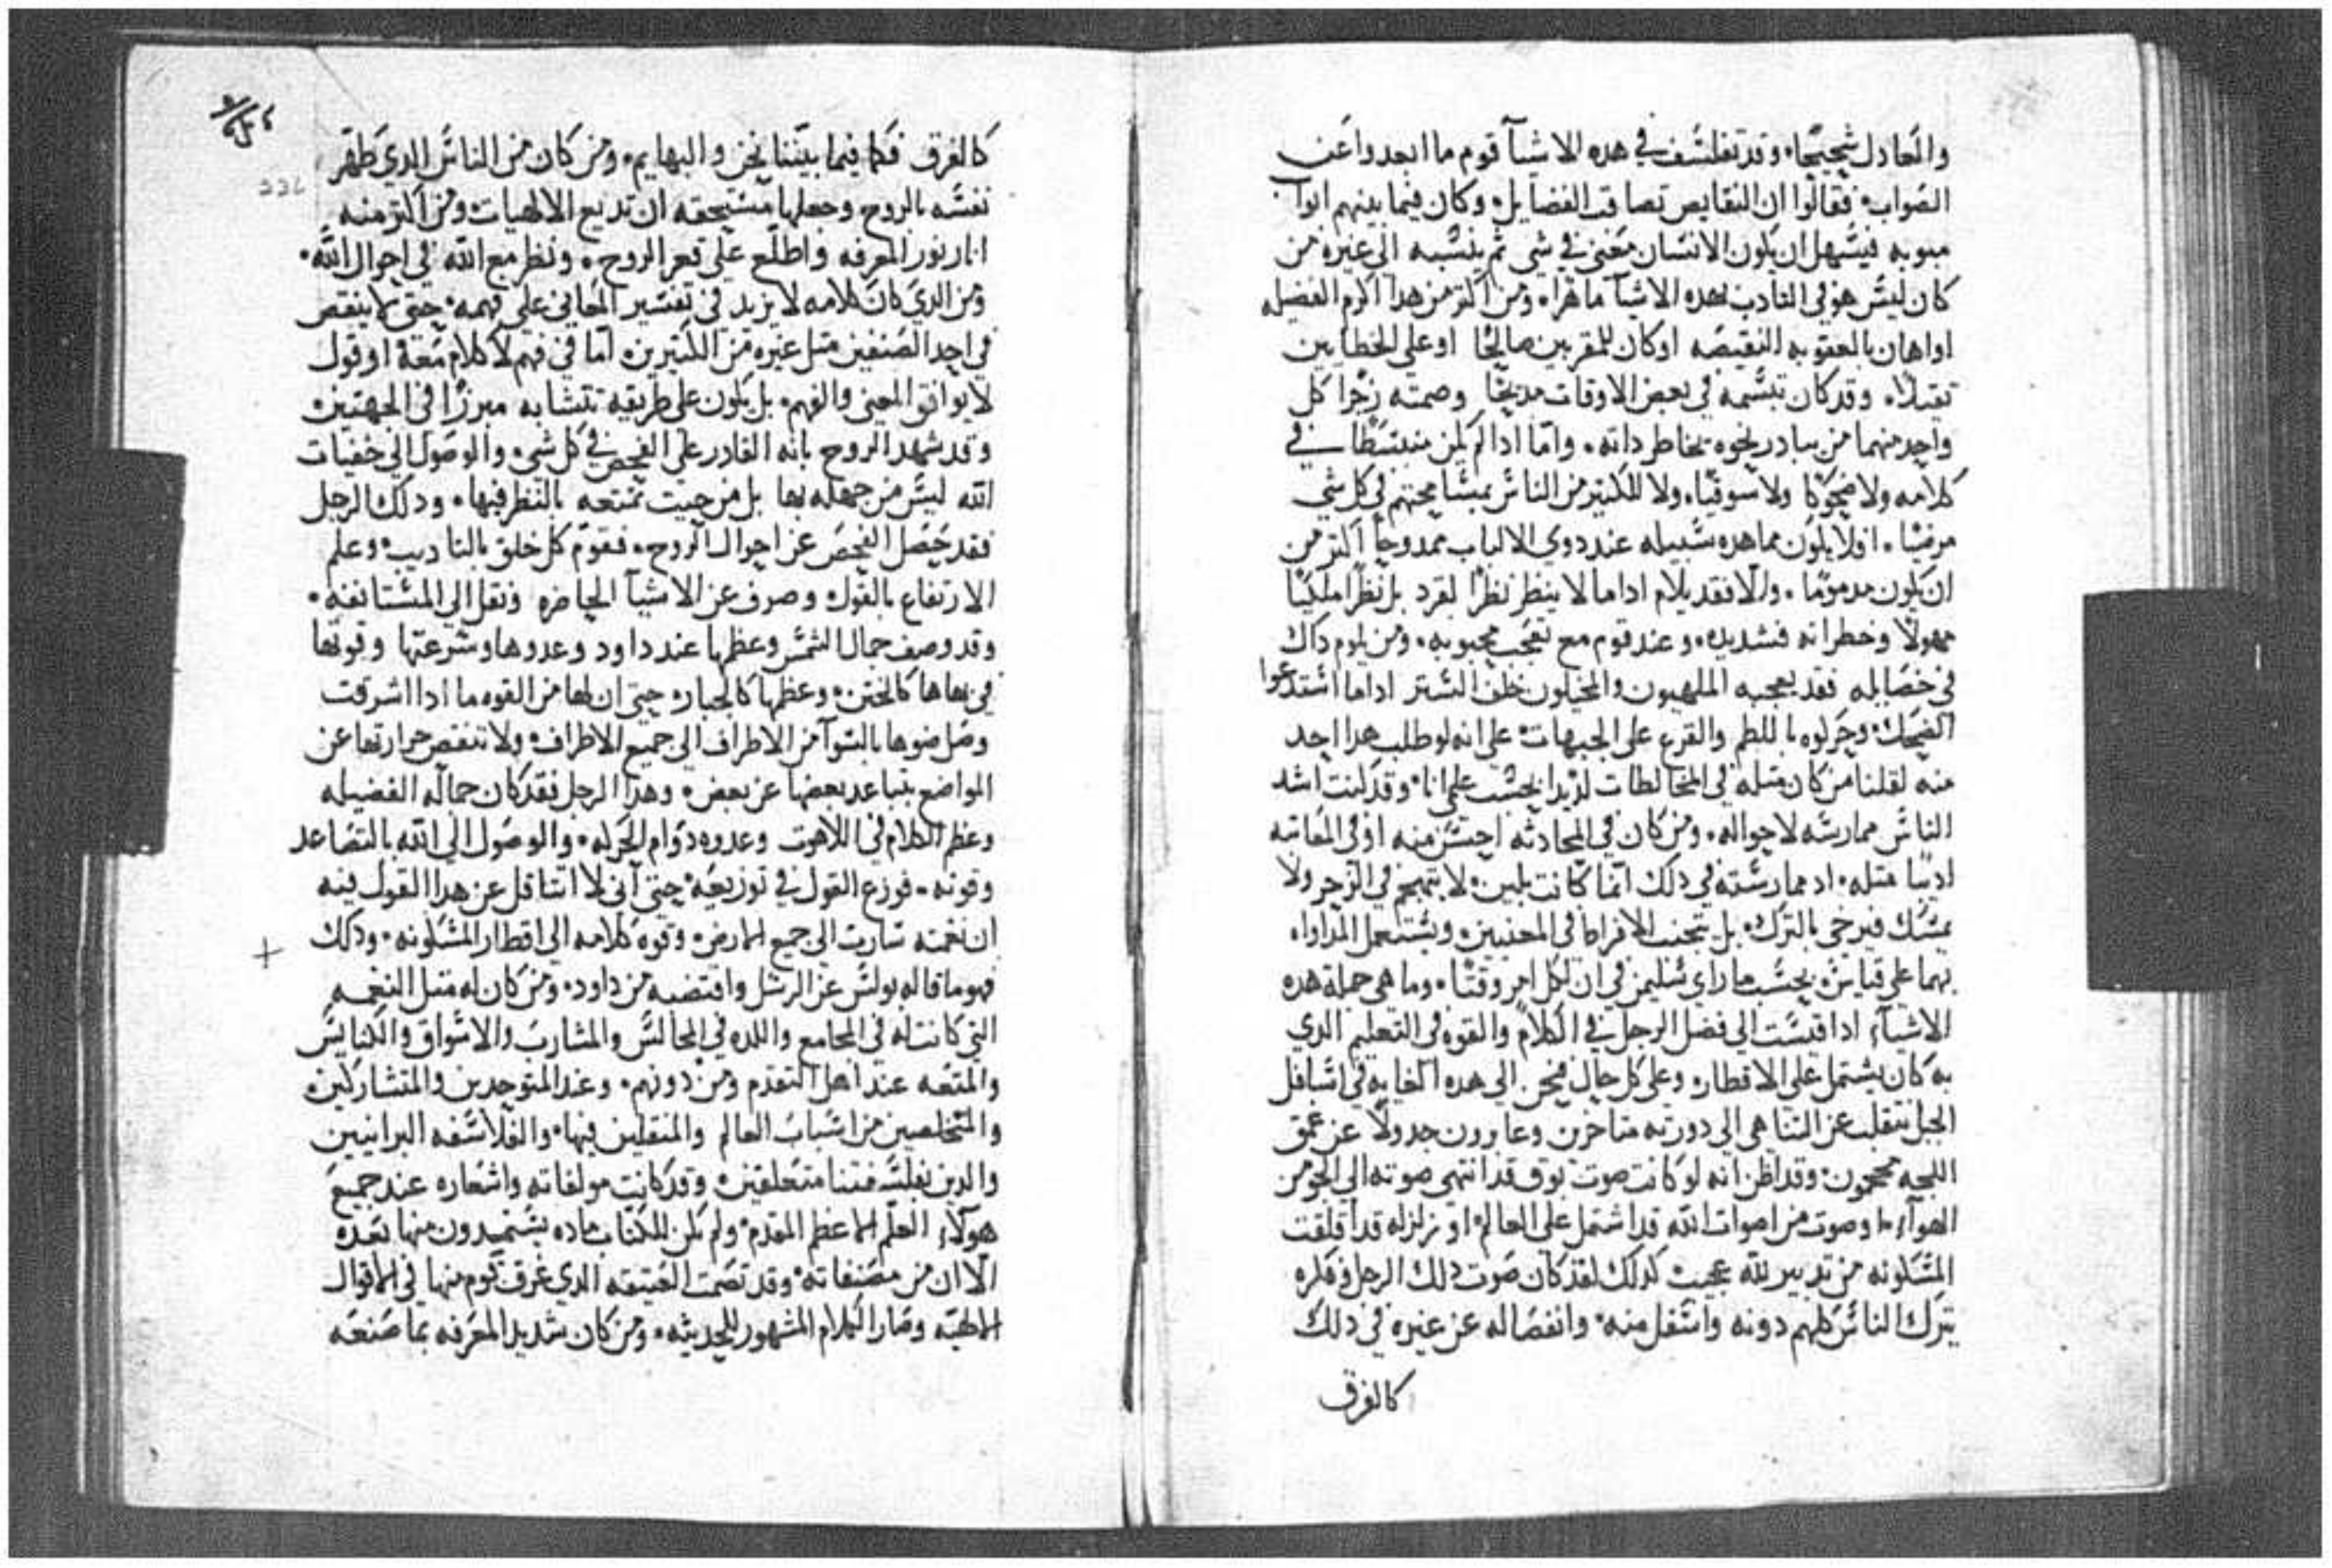 والعادل شجيحًا، وقد تفلسف في هذه الاشيآ قوم ما ابعدوا عن
الصواب، فقالوا ان النقايص تصاقب الفضايل، وكان فيما بينهم ابوابـ
مبوبه فيسهل ان يكون الانسان معنى في شي ثم ينسبه الى غيره من
كان ليس هو في التادب بهده الاشيآ ماهرا، ومن اكتر من هدا اكرم الفضيله
او اهان بالعقوبه النقيصه او كان للمقربين صالحًا او على الخطايين
تقيلًا، وقد كان تبسمه في بعض الاوقات مديحًا وصمته زجرا كل
واحد منهما من يبادر نحوه بخاطر داته، واما ادا لم يكن منبسطا في
كلامه ولا ضحوكا ولا سوقيا، ولا للكتير من الناس بمسامحتهم في كل شي
مرضيا، افلا يكون مما هده سبيله عند دوي الالباب ممدوحًا اكتر من
ان يكون مدمومًا، والا فقد يلام اداما لا ينظر نظرًا لقرد بل نظرا ملكيًا
مهولًا وخطراته فشديده، وعند قوم مع تعجب محبوبه، ومن يلوم داك
في خصايله فقد يعجبه الملهيون والمخيلون خلف الستر اداما استدعوا
الضحك، وحركوه باللطم والقرع على الجبهات، على انه لو طلب هدا احد
منه لقلنا من كان متله في المخالطات لديدا بحسب علمي انا، وقد كنت اشد
الناس ممارسه لاحواله، ومن كان في المحادثه احسن منه او في المعاتبه
اديبا متله، اد ممارسته في دلك انما كانت بلين، لا يتهجم في الزجر ولا
يمسك فيرخى بالترك، بل يتجنب الافراط في المعنيين ويستعمل المداواه
بهما على قياس، بحسب ما راى سليمن في ان لكل امر وقتًا، وما هي جملة هده
الاشيآء ادا قيست الى فضل الرجل في الكلام والقوه في التعليم الدي
به كان يشتمل على الاقطار، وعلى كل حال فنحن الى هده الغايه في اسافل
الجبل ننقلب عن التناهي الى دورته متاخرين وعابرون جدولًا عن عمق
اللجه محجمون، وقد اظن انه لو كانت صوت بوق قد انتهى صوته الى الجو من
الهوآء، او صوت من اصوات الله قد اشتمل على العالم، او زلزله قد اقلقت
المسكونه من تدبير لله عجيب، كدلك لقد كان صوت دلك الرجل وفكره
بترك الناس كلهم دونه واسفل منه، وانفصاله عن غيره في دلك
كالفرق
كالفرق فكما فيما بيننا نحن والبهايم، ومن كان من الناس الدي طهر
نفسه بالروح وجعلها مستحقه ان تديع الالاهيات، ومن اكتر منه
انار نور المعرفه واطلع على قعر الروح، ونظر مع الله في احوال الله،
ومن الدي كان كلامه لا يزيد في تفسير المعاني على فهمه، حتى لا ينقص
في احد الصنفين متل غيره من الكتيرين، اما في فهم لا كلام معه، او قول
لا يوافق المعنى والفهم، بل يكون على طريقه تتشابه مبرزًا في الجهتين،
وقد شهد الروح بانه القادر على الفحص في كل شي، والوصول الى خفيات
الله ليس من جهله بها بل من حيت تمتعه بالنظر فيها، ودلك الرجل
فقد حصل الفحص عن احوال الروح، فقوم كل خلق بالتاديب، وعلم
الارتفاع بالقول، وصرف عن الاشيآ الحاضره ونقل الى المستانفه،
وقد وصف جمال الشمس وعظمها عند داود وعدوها وسرعتها وقوتها
في بهاها كالختن، وعظمها كالجبار، حتى ان لها من القوه ما ادا اشرقت
وصل ضوها بالسوآ من الاطراف الى جميع الاطراف، ولا تنقص حرارتها عن
المواضع بتباعد بعضها عن بعض، وهدا الرجل فقد كان جماله الفضيله
وعظم الكلام في اللاهوت وعدوه دوام الحركه، والوصول الى الله بالتصاعد
وقوته، فوزع القول في توزيعه، حتى انى لا اتتاقل عن هدا القول فيه
ان نغمته سارت الى جميع الارض، وقوة كلامه الى اقطار المسكونه، ودلك
فهو ما قاله بولس عن الرسل واقتضبه من داود، ومن كان له متل النعمه
التي كانت له في المجامع واللده في المجالس والمشارب والاسواق والكنايس
والمتعه عند اهل التقدم ومن دونهم، وعند المتوحدين والمتشاركين،
والمتخلصين من اسباب العالم والمتقلبين فيها، والفلاسفه البرانيين
والدين بفلسفتنا متعلقين، وقد كانت مولفاته واشعاره عند جميع
هولآء العلم الاعظم المقدم، ولم يكن للكتاب ماده يستمدون منها بعده
الا ان من مصنفاته، وقد تصمت العتيقه الدي غرق قوم منها في الاقوال
الالاهيه وصار الكلام المشهور للحديثه، ومن كان شديد المعرفه بما صنعه